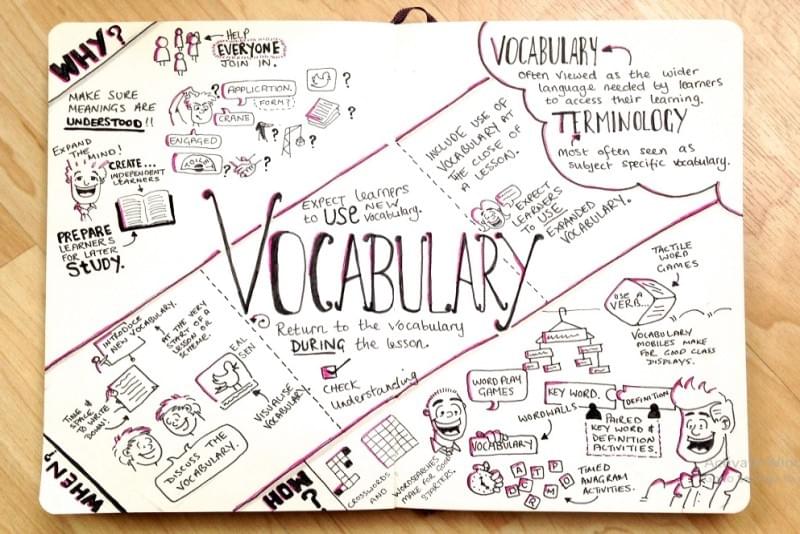 WHY?
HELP
EVERYONE
JOIN IN.
MAKE SURE
MEANINGS ARE
UNDERSTOOD!!
?
APPLICATION.
FORM?
CRANE
ENGAGED
?
?
?
?
?
?
EXPAND
THE MIND!
CREATE...
INDEPENDENT
LEARNERS
PREPARE
LEARNERS
FOR LATER
STUDY.
VOCABULARY
Often viewed as the wider
language needed by learners
to access their learning.
TERMINOLOGY
Most often seen as
subject specific vocabulary.
INCLUDE USE OF
VOCABULARY AT
THE CLOSE OF
A LESSON.
EXPECT
LEARNERS
TO USE
EXPANDED
VOCABULARY.
EXPECT learners
to USE NEW
vocabulary.
VOCABULARY
Return to the vocabulary
DURING the lesson.
CHECK
Understanding
INTRODUCE
NEW VOCABULARY.
AT THE VERY
START OF A
LESSON OR
SCHEME.
TIME &
SPACE
TO WRITE
DOWN.
EAL
SEN
VISUALISE
VOCABULARY.
DISCUSS THE
VOCABULARY.
WHEN?
HOW?
CROSSWORDS
AND
WORDSEARCHES
MAKE FOR GOOD
STARTERS.
WORD PLAY
GAMES
WORDWALLS
VOCABULARY
KEY WORD.
DEFINITION
PAIRED
KEY WORD &
DEFINITION
ACTIVITIES.
A T P
D C R M O
TIMED
ANAGRAM
ACTIVITIES.
TACTILE
WORD
GAMES
USE A
VERB...
VOCABULARY
MOBILES MAKE
FOR GOOD CLASS
DISPLAYS.